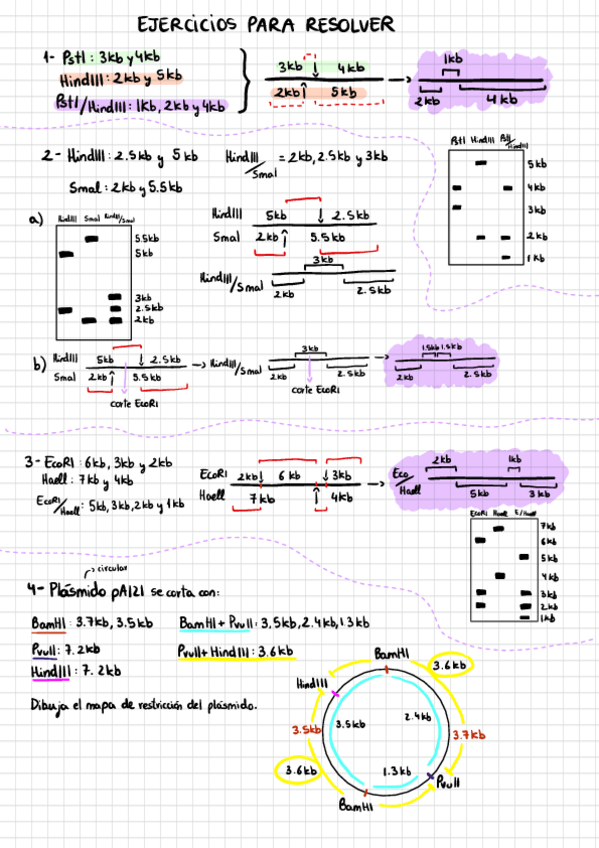 EJERCICIOS PARA RESOLVER
1- PstI : 3kb y 4kb
HindIII : 2kb y 5kb
PstI/HindIII : 1kb, 2kb y 4kb
3kb 4kb
2kb 5kb
1kb
2kb 4kb
2- HindIII : 2.5kb y 5kb
SmaI : 2kb y 5.5kb
HindIII/SmaI = 2kb, 2.5kb y 3kb
PstI HindIII PstI/HindIII
5kb
4kb
3kb
2kb
1kb
a)
HindIII SmaI HindIII/SmaI
5.5kb
5kb
3kb
2.5kb
2kb
HindIII 5kb 2.5kb
SmaI 2kb 5.5kb
HindIII/SmaI 3kb
2kb 2.5kb
b) HindIII 5kb 2.5kb
SmaI 2kb 5.5kb
corte EcoRI
HindIII/SmaI 3kb
2kb 2.5kb
corte EcoRI
1.5kb 1.5kb
2kb 2.5kb
3- EcoRI : 6kb, 3kb y 2kb
HaeII : 7kb y 4kb
EcoRI/HaeII : 5kb, 3kb, 2kb y 1kb
EcoRI 2kb 6kb 3kb
HaeII 7kb 4kb
Eco/HaeII 2kb 1kb
5kb 3kb
EcoRI HaeII E/HaeII
7kb
6kb
5kb
4kb
3kb
2kb
1kb
circular
4- Plásmido pA121 se corta con:
BamHI : 3.7kb, 3.5kb
BamHI + PvuII : 3,5kb, 2.4kb, 1.3kb
PvuII : 7.2kb
PvuII + HindIII : 3.6kb
HindIII : 7.2kb
Dibuja el mapa de restricción del plásmido.
BamHI
3.6kb
HindIII
3.5kb
3.5kb
2.4kb
3.7kb
3.6kb
1.3kb
PvuII
BamHI